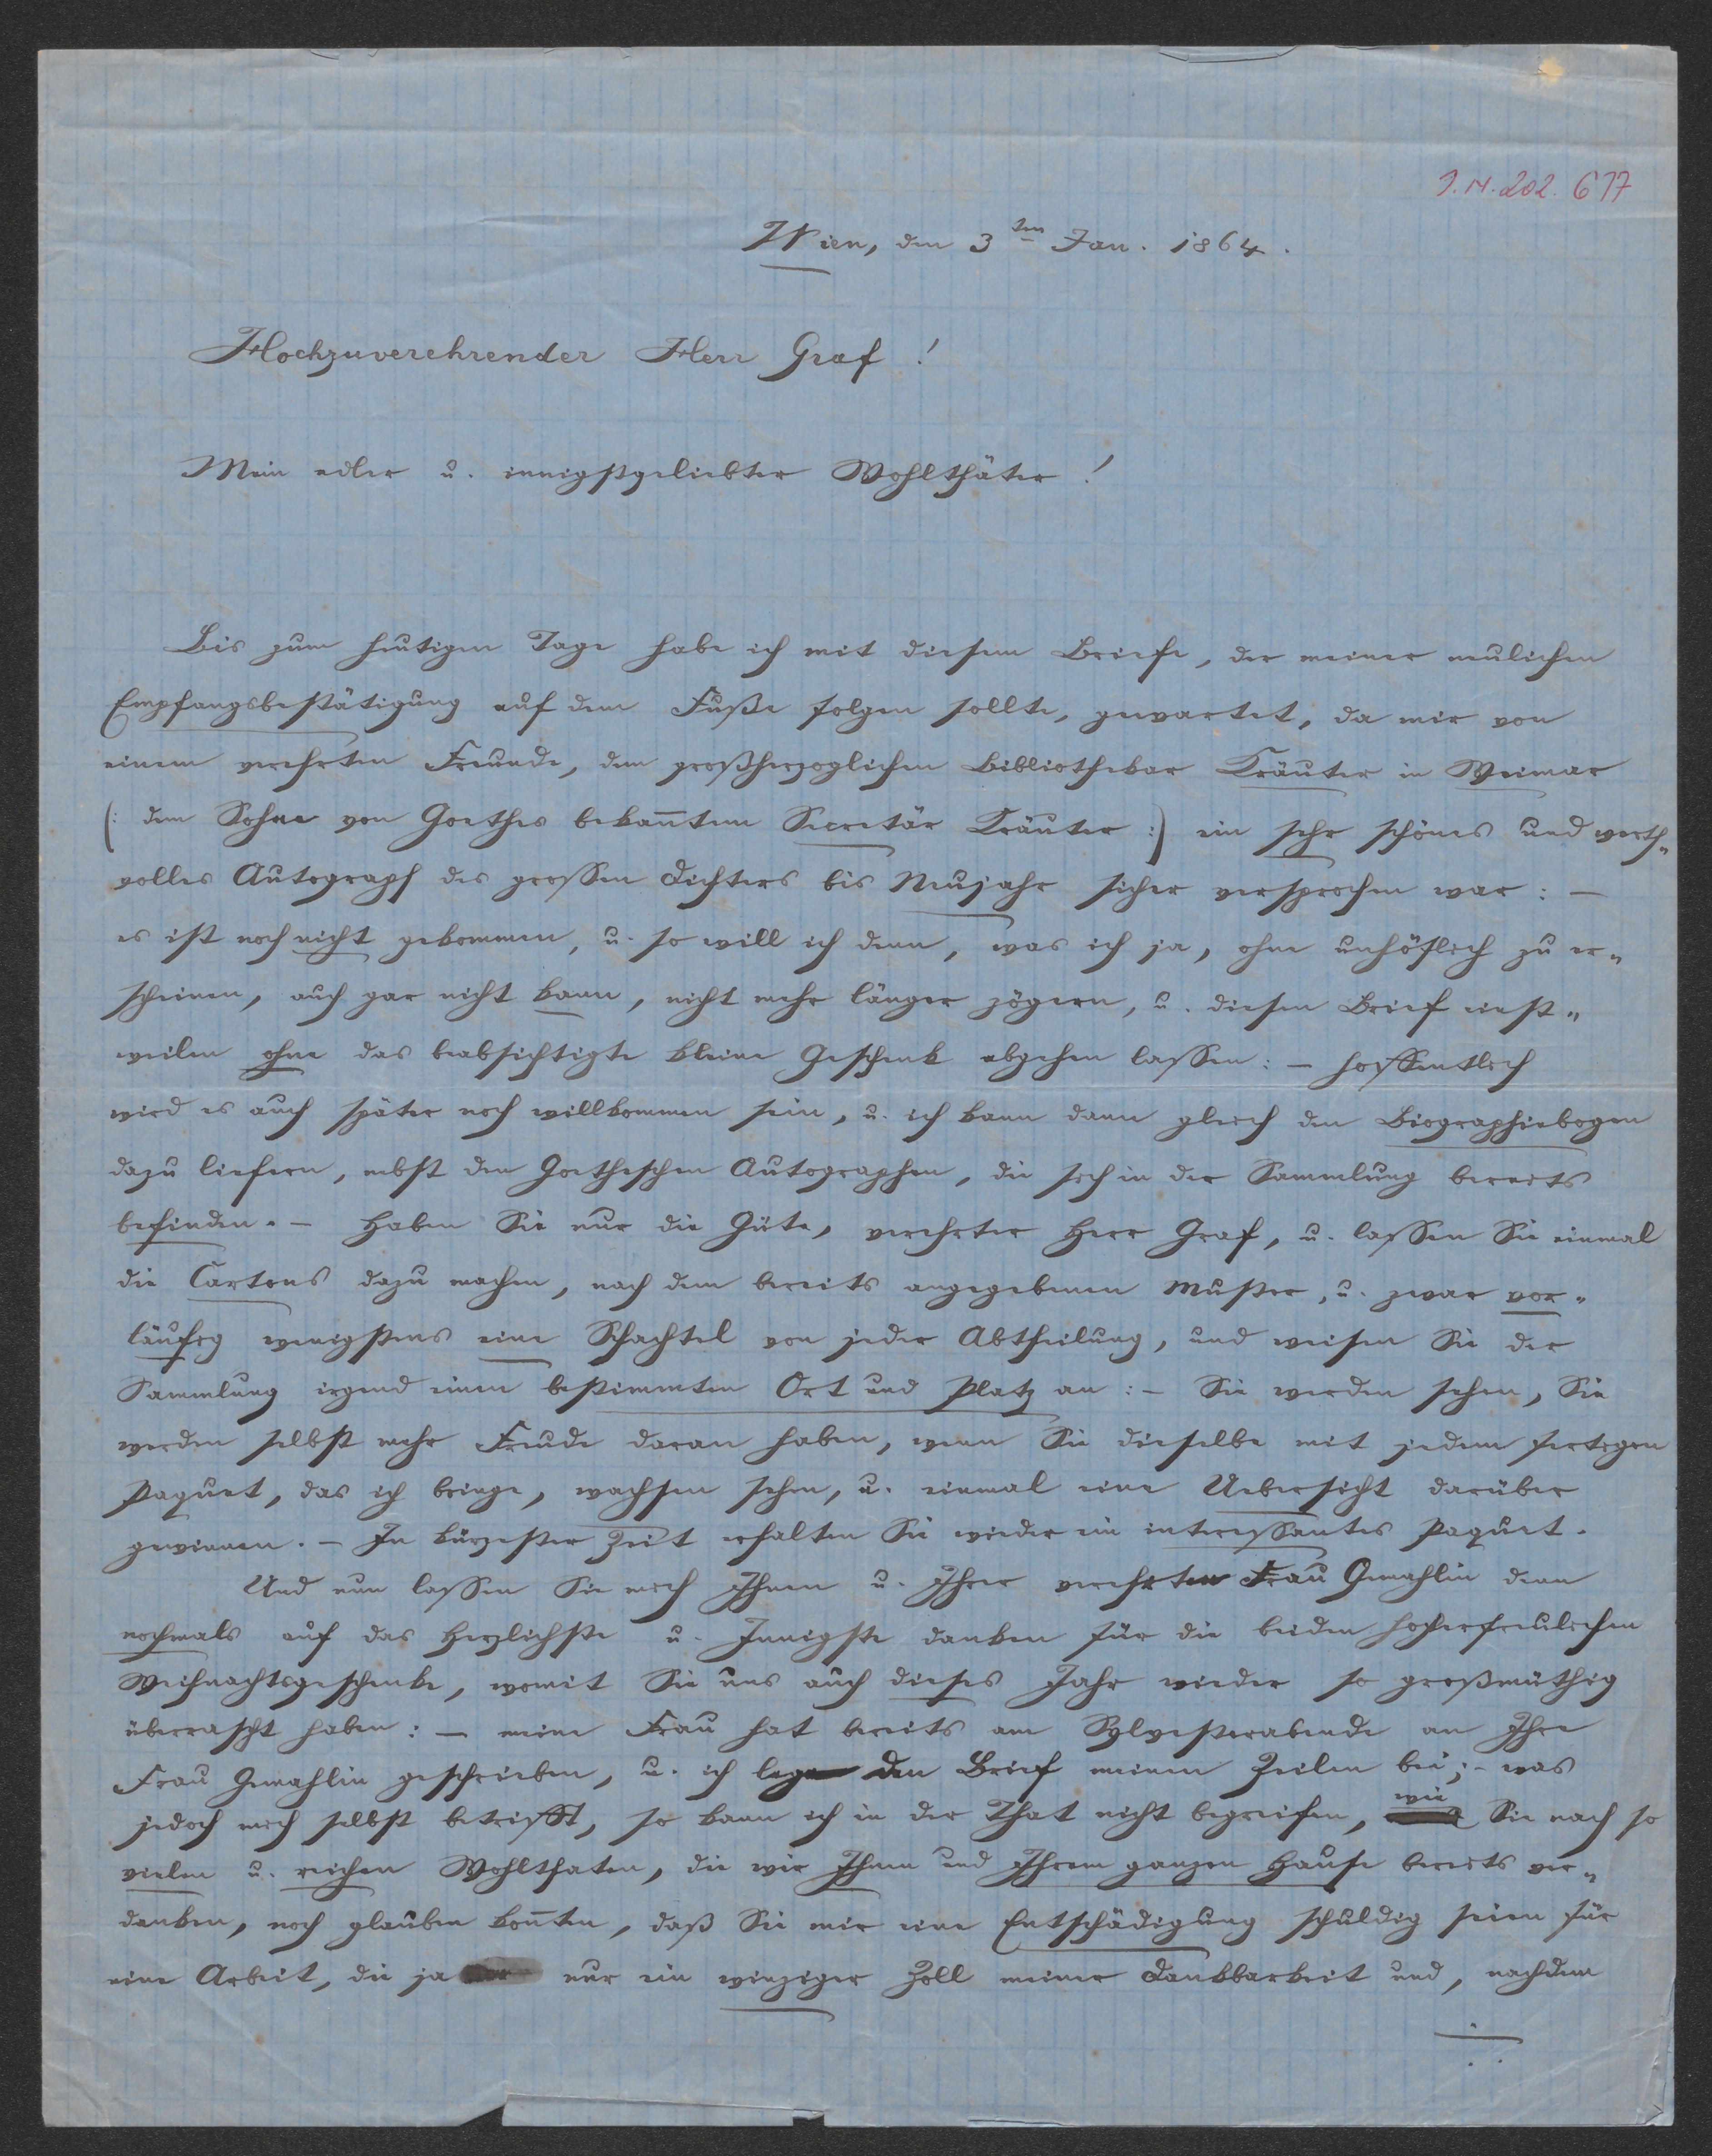 I.N. 202.677
Wien, den 3ten Jan. 1864.
Hochzuverehrender Herr Graf!
Mein edler u. innigstgeliebter Wohlthäter!
Bis zum heutigen Tage habe ich mit diesem Briefe, der meiner neulichen
Empfangsbestätigung auf dem Fuße folgen sollte, gewartet, da mir von
einem verehrten Freunde, dem großherzoglichen Bibliothekar Kräuter in Weimar
(: dem Sohne von Goethes bekanntem Secretär Kräuter :) ein sehr schönes und werth„
volles Autograph des grossen Dichters bis Neujahr sicher versprochen war: –
es ist noch nicht gekommen, u. so will ich denn, was ich ja, ohne unhöflich zu er„
scheinen, auch gar nicht kann, nicht mehr länger zögern, u. diesen Brief einst„
weilen ohne das beabsichtigte kleine Geschenk abgehen lassen: – hoffentlich
wird es auch später noch willkommen sein, u. ich kann dann gleich den Biographiebogen
dazu liefern, nebst den Goetheschen Autographen, die sich in der Sammlung bereits
befinden. – Haben Sie nur die Güte, verehrter Herr Graf, u. lassen Sie einmal
die Cartons dazu machen, nach dem bereits angegebenen Muster, u. zwar vor„
läufig wenigstens eine Schachtel von jeder Abtheilung, und weisen Sie der
Sammlung irgend einen bestimmten Ort und Platz an: – Sie werden sehen, Sie
werden selbst mehr Freude daran haben, wenn Sie dieselbe mit jedem fertigen
Paquet, das ich bringe, wachsen sehen, u. einmal eine Uebersicht darüber
gewinnen. – In kürzester Zeit erhalten Sie wieder ein interessantes Paquet.
Und nun lassen Sie mich Ihnen u. Ihrer verehrten Frau Gemahlin denn
nochmals auf das Herzlichste u. Innigste danken für die beiden hocherfreulichen
Weihnachtsgeschenke, womit Sie uns auch dieses Jahr wieder so großmüthig
überrascht haben: – meine Frau hat bereits am Sylvesterabende an Ihre
Frau Gemahlin geschrieben, u. ich lege den Brief meinen Zeilen bei; – was
jedoch mich selbst betrifft, so kann ich in der That nicht begreifen, wie Sie nach so
vielen u. reichen Wohlthaten, die wir Ihnen und Ihrem ganzen Hause bereits ver„
danken, noch glauben konnten, daß Sie mir eine Entschädigung schuldig seien für
eine Arbeit, die ja nur ein winziger Zoll meiner Dankbarkeit und, nachdem